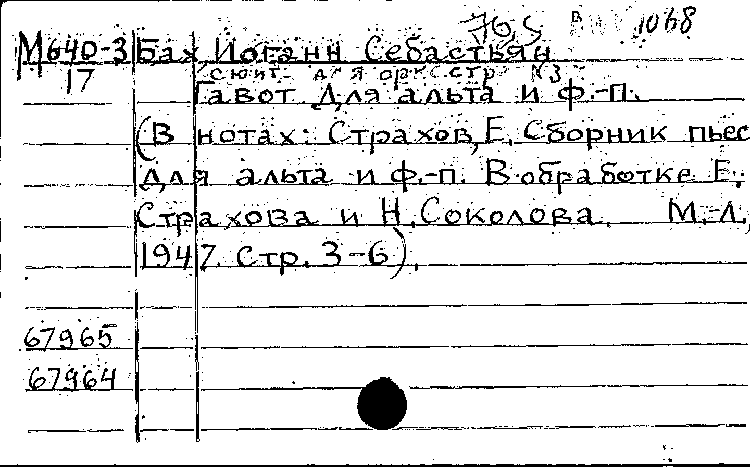 1068
М640-3 Бах, Иоганн Себастьян
17 сюит для оркестр N3
Гавот для альта и ф.-п.
(В нотах: Страхов, Е. Сборник пьес
для альта и ф.-п. В обработке Е.
Страхова и Н. Соколова. М.-Л.,
1947. Стр. 3-6).
67965
67964